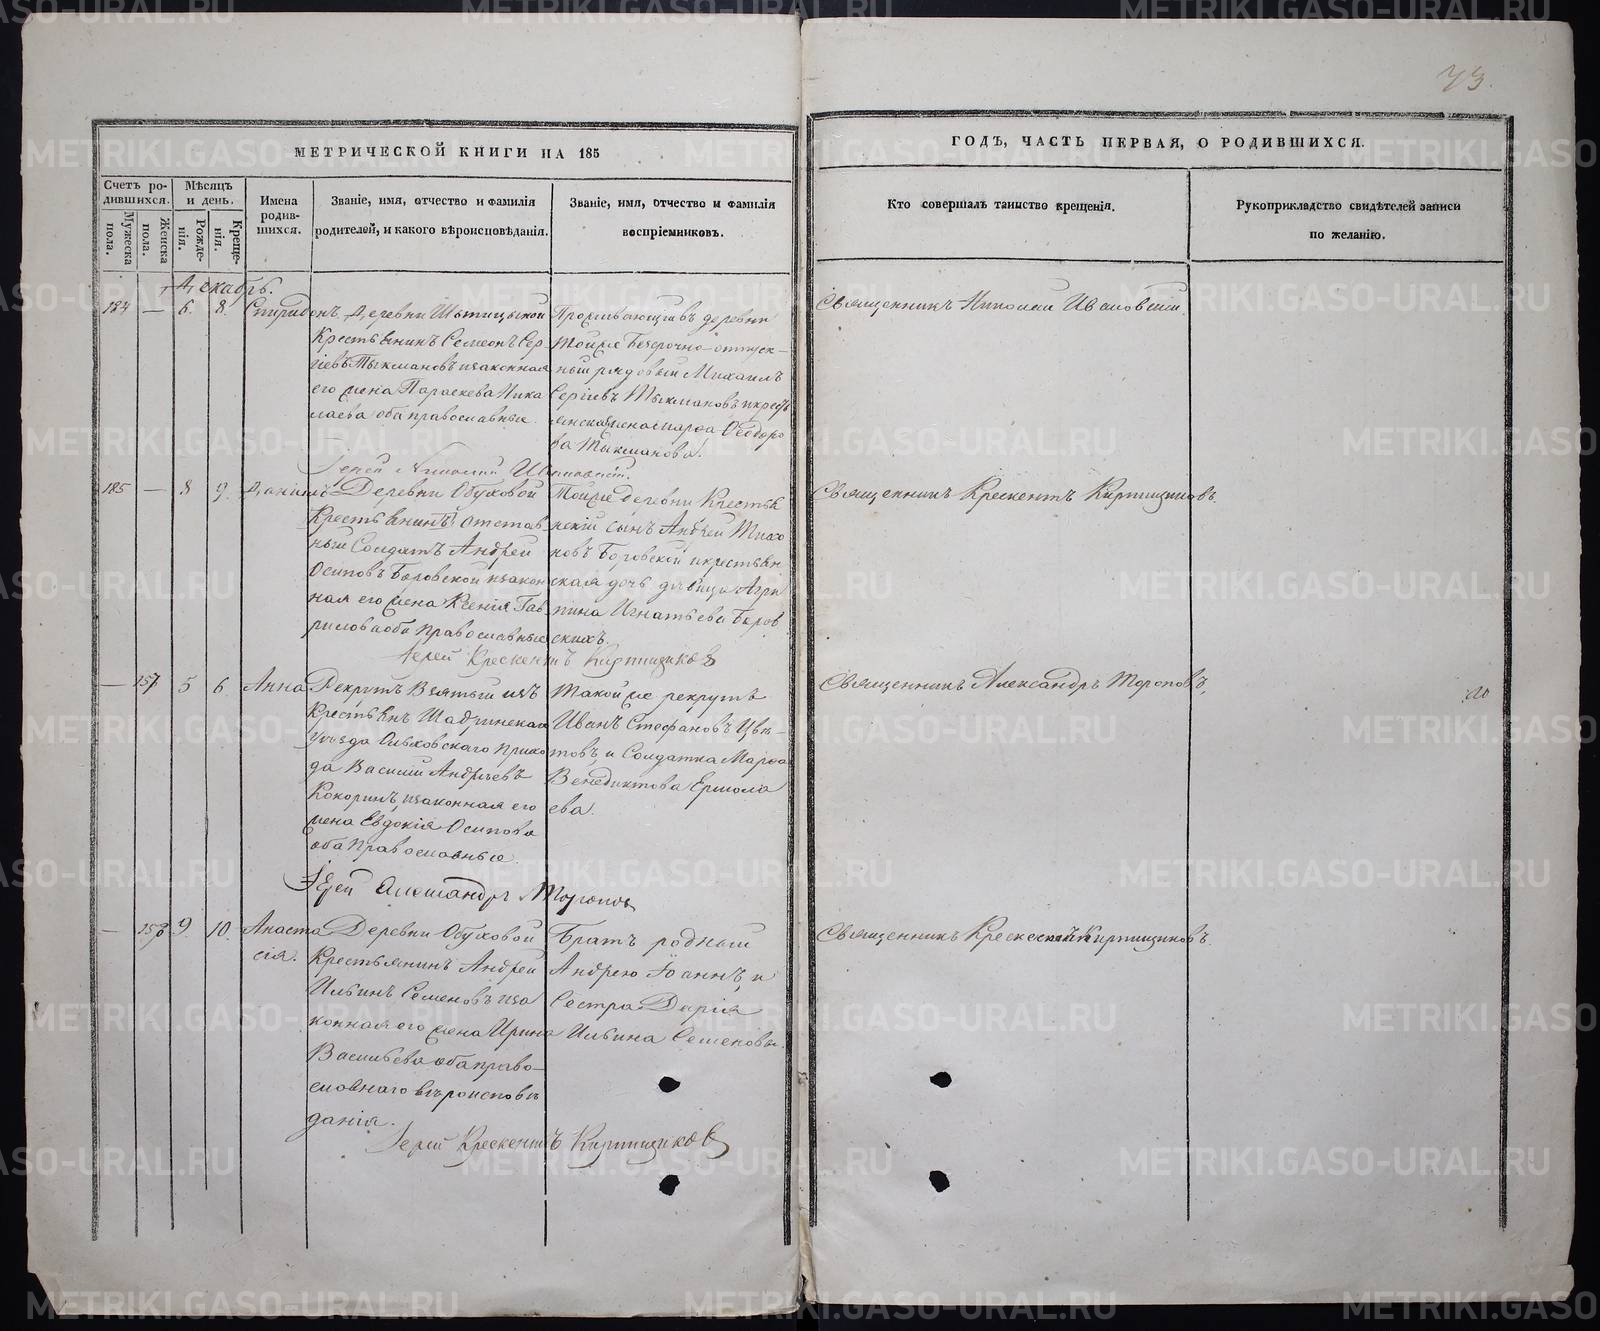 73.
МЕТРИЧЕСКОЙ КНИГИ НА 185
ГОДЪ, ЧАСТЬ ПЕРВАЯ, О РОДИВШИХСЯ.
Счетъ ро-
дившихся.
Мужеска
пола.
Женска
пола.
Мѣсяцъ
и день.
Рожде-
нія.
Креще-
нія.
Имена
родив-
шихся.
Званіе, имя, отчество и фамилія
родителей, и какого вѣроисповѣданія.
Званіе, имя, отчество и фамилія
воспріемниковъ.
Кто совершалъ таинство крещенія.
Рукоприкладство свидѣтелей записи
по желанію.
Декабрь.
184 — 6. 8. Спиридонъ
Деревни
Крестьянинъ Семеонъ Сер-
гіевъ Тыкмановъ и законная
его жена Параскева Нико
лаева оба православные
Проживающій въ деревни
тойже безсрочно-отпуск-
ный рядовый Михаилъ
Сергіевъ Тыкмановъ и крестъ
янская жена Марѳа Ѳеодоро
ва Тыкманова.
Священникъ Николай Ивановскій
Іерей Николай Ивановскій.
185 — 8 9. Даніилъ
Деревни Обуховой
Крестьянинъ отстав
ный Солдатъ Андрей
Осиповъ Боровской и закон
ная его жена Ксенія Гав
рилова оба православные
Тойже деревни Крестья
нскій сынъ Андрей Тихо
новъ Боровской и крестьян
ская дочь дѣвица Агри
пина Игнатьева Боров
скихъ.
Священникъ Крескентъ Кирпищиковъ.
Іерей Крескентъ Кирпищиковъ
— 157 5 6. Анна
Рекрутъ взятый изъ
Крестьянъ Шадринскаго
уѣзда Ольховскаго прихо
да Василій Андреевъ
Кокоринъ, и законная его
жена Евдокія Осипова
оба Православные.
Такой же рекрутъ
Иванъ Стефановъ Цвѣ-
товъ, и Солдатка Марѳа
Венедиктова Ермола
ева.
Священникъ Александръ Тороповъ,
Іерей Александръ Тороповъ
— 158 9. 10. Анаста
сія.
Деревни Обуховой
Крестьянинъ Андрей
Ильинъ Семеновъ и за
конная его жена Ирина
Васильева оба право-
славнаго вѣроисповѣ
данія.
Братъ родный
Андрею Іоаннъ, и
Сестра Дарія
Ильина Семеновы.
Священникъ Крескентъ Кирпищиковъ.
Іерей Крескентъ Кирпищиковъ
METRIKI.GASO-URAL.RU